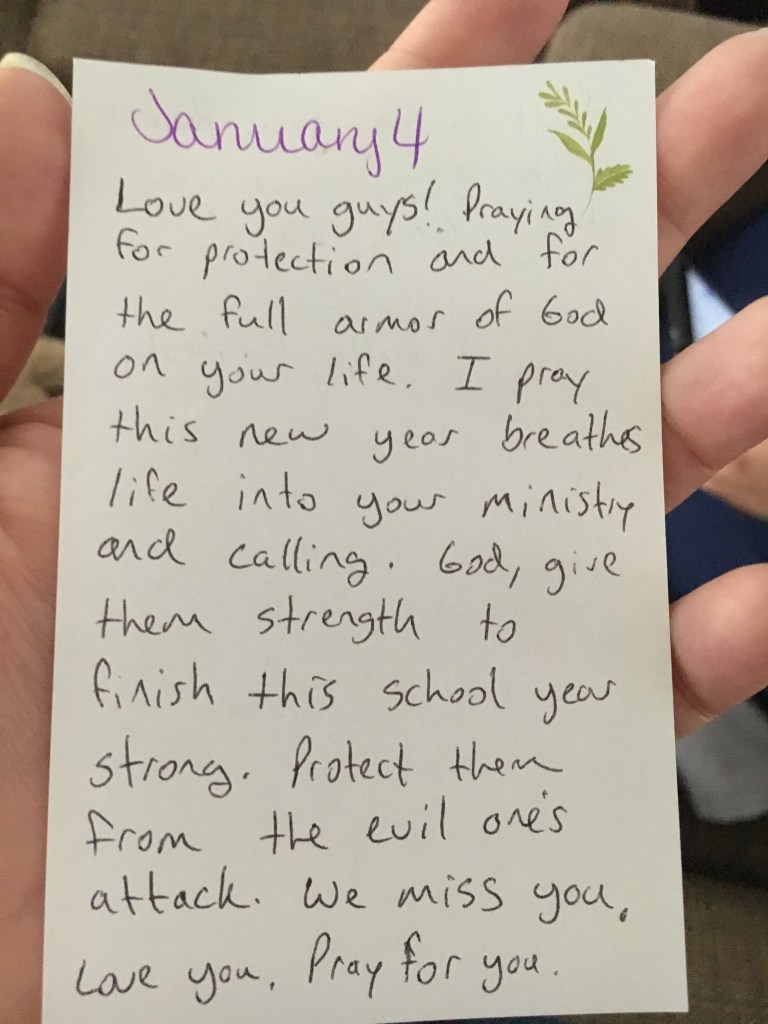 January 4
Love you guys! Praying
for protection and for
the full armor of God
on your life. I pray
this new year breathes
life into your ministry
and calling. God, give
them strength to
finish this school year
strong. Protect them
from the evil one's
attack. We miss you,
Love you, Pray for you.